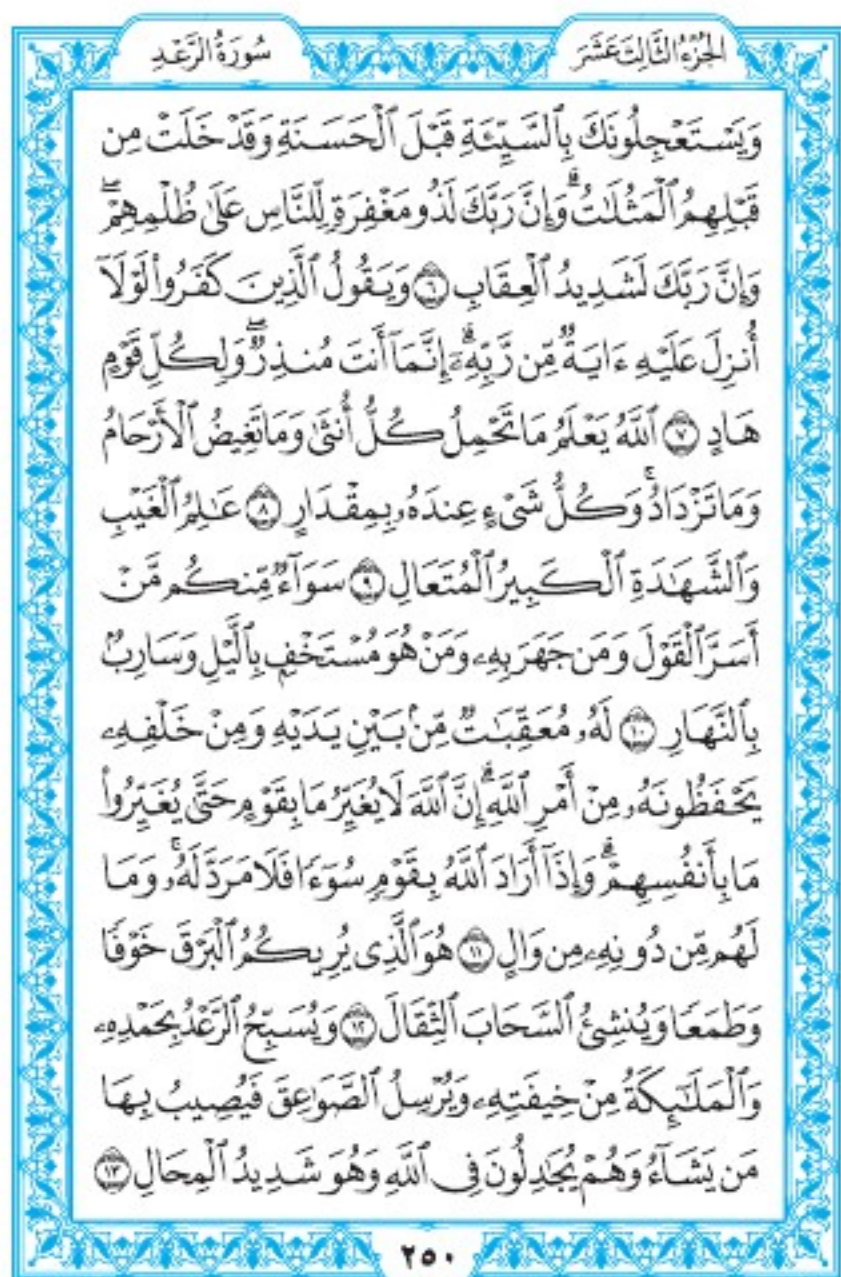 الجُزْءُ الثَّالِثَ عَشَرَ
سُورَةُ الرَّعْدِ
وَيَسْتَعْجِلُونَكَ بِٱلسَّيِّئَةِ قَبْلَ ٱلْحَسَنَةِ وَقَدْ خَلَتْ مِن
قَبْلِهِمُ ٱلْمَثُلَٰتُۗ وَإِنَّ رَبَّكَ لَذُو مَغْفِرَةٍ لِّلنَّاسِ عَلَىٰ ظُلْمِهِمْۖ
وَإِنَّ رَبَّكَ لَشَدِيدُ ٱلْعِقَابِ ۝٦ وَيَقُولُ ٱلَّذِينَ كَفَرُوا۟ لَوْلَآ
أُنزِلَ عَلَيْهِ ءَايَةٌ مِّن رَّبِّهِۦٓۗ إِنَّمَآ أَنتَ مُنذِرٌۖ وَلِكُلِّ قَوْمٍ
هَادٍ ۝٧ ٱللَّهُ يَعْلَمُ مَا تَحْمِلُ كُلُّ أُنثَىٰ وَمَا تَغِيضُ ٱلْأَرْحَامُ
وَمَا تَزْدَادُۚ وَكُلُّ شَىْءٍ عِندَهُۥ بِمِقْدَارٍ ۝٨ عَٰلِمُ ٱلْغَيْبِ
وَٱلشَّهَٰدَةِ ٱلْكَبِيرُ ٱلْمُتَعَالِ ۝٩ سَوَآءٌ مِّنكُم مَّنْ
أَسَرَّ ٱلْقَوْلَ وَمَن جَهَرَ بِهِۦ وَمَنْ هُوَ مُسْتَخْفٍۭ بِٱلَّيْلِ وَسَارِبٌۢ
بِٱلنَّهَارِ ۝١٠ لَهُۥ مُعَقِّبَٰتٌ مِّنۢ بَيْنِ يَدَيْهِ وَمِنْ خَلْفِهِۦ
يَحْفَظُونَهُۥ مِنْ أَمْرِ ٱللَّهِۗ إِنَّ ٱللَّهَ لَا يُغَيِّرُ مَا بِقَوْمٍ حَتَّىٰ يُغَيِّرُوا۟
مَا بِأَنفُسِهِمْۗ وَإِذَآ أَرَادَ ٱللَّهُ بِقَوْمٍ سُوٓءًا فَلَا مَرَدَّ لَهُۥۚ وَمَا
لَهُم مِّن دُونِهِۦ مِن وَالٍ ۝١١ هُوَ ٱلَّذِى يُرِيكُمُ ٱلْبَرْقَ خَوْفًا
وَطَمَعًا وَيُنشِئُ ٱلسَّحَابَ ٱلثِّقَالَ ۝١٢ وَيُسَبِّحُ ٱلرَّعْدُ بِحَمْدِهِۦ
وَٱلْمَلَٰٓئِكَةُ مِنْ خِيفَتِهِۦ وَيُرْسِلُ ٱلصَّوَٰعِقَ فَيُصِيبُ بِهَا
مَن يَشَآءُ وَهُمْ يُجَٰدِلُونَ فِى ٱللَّهِ وَهُوَ شَدِيدُ ٱلْمِحَالِ ۝١٣
٢٥٠